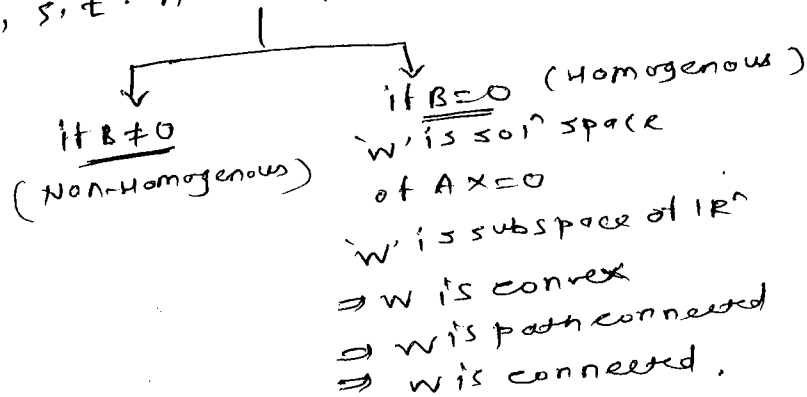 , s.t.
if B≠0
(Non-Homogenous)
if B=0 (Homogenous)
'W' is solⁿ space
of AX=0
'W' is subspace of IRⁿ
⇒ W is convex
⇒ W is path connected
⇒ W is connected.